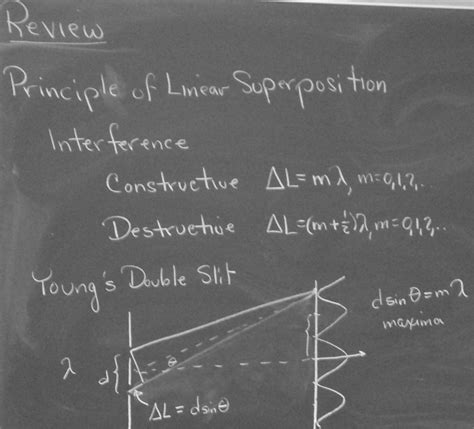 Review
Principle of Linear Superposition
Interference
Constructive ΔL=mλ, m=0,1,2,..
Destructive ΔL=(m+½)λ, m=0,1,2,..
Young's Double Slit
d sinθ=mλ
maxima
θ
λ
d
ΔL = dsinθ